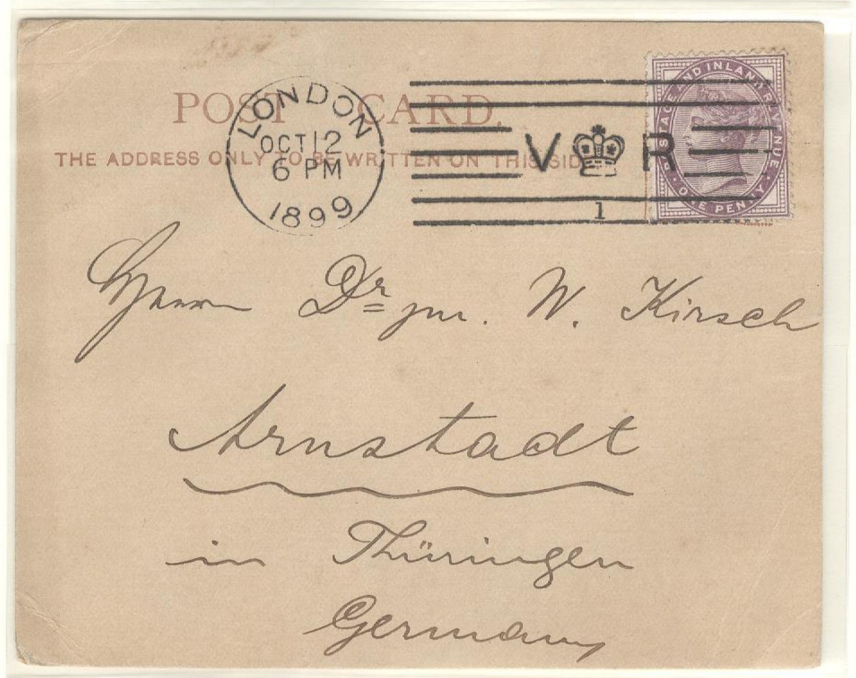 POST CARD.
THE ADDRESS ONLY TO BE WRITTEN ON THIS SIDE
LONDON
OCT 12
6 PM
1899
V R
1
POSTAGE AND INLAND REVENUE
ONE PENNY
Herrn Dr. jur. W. Kirsch
Arnstadt
in Thüringen
Germany